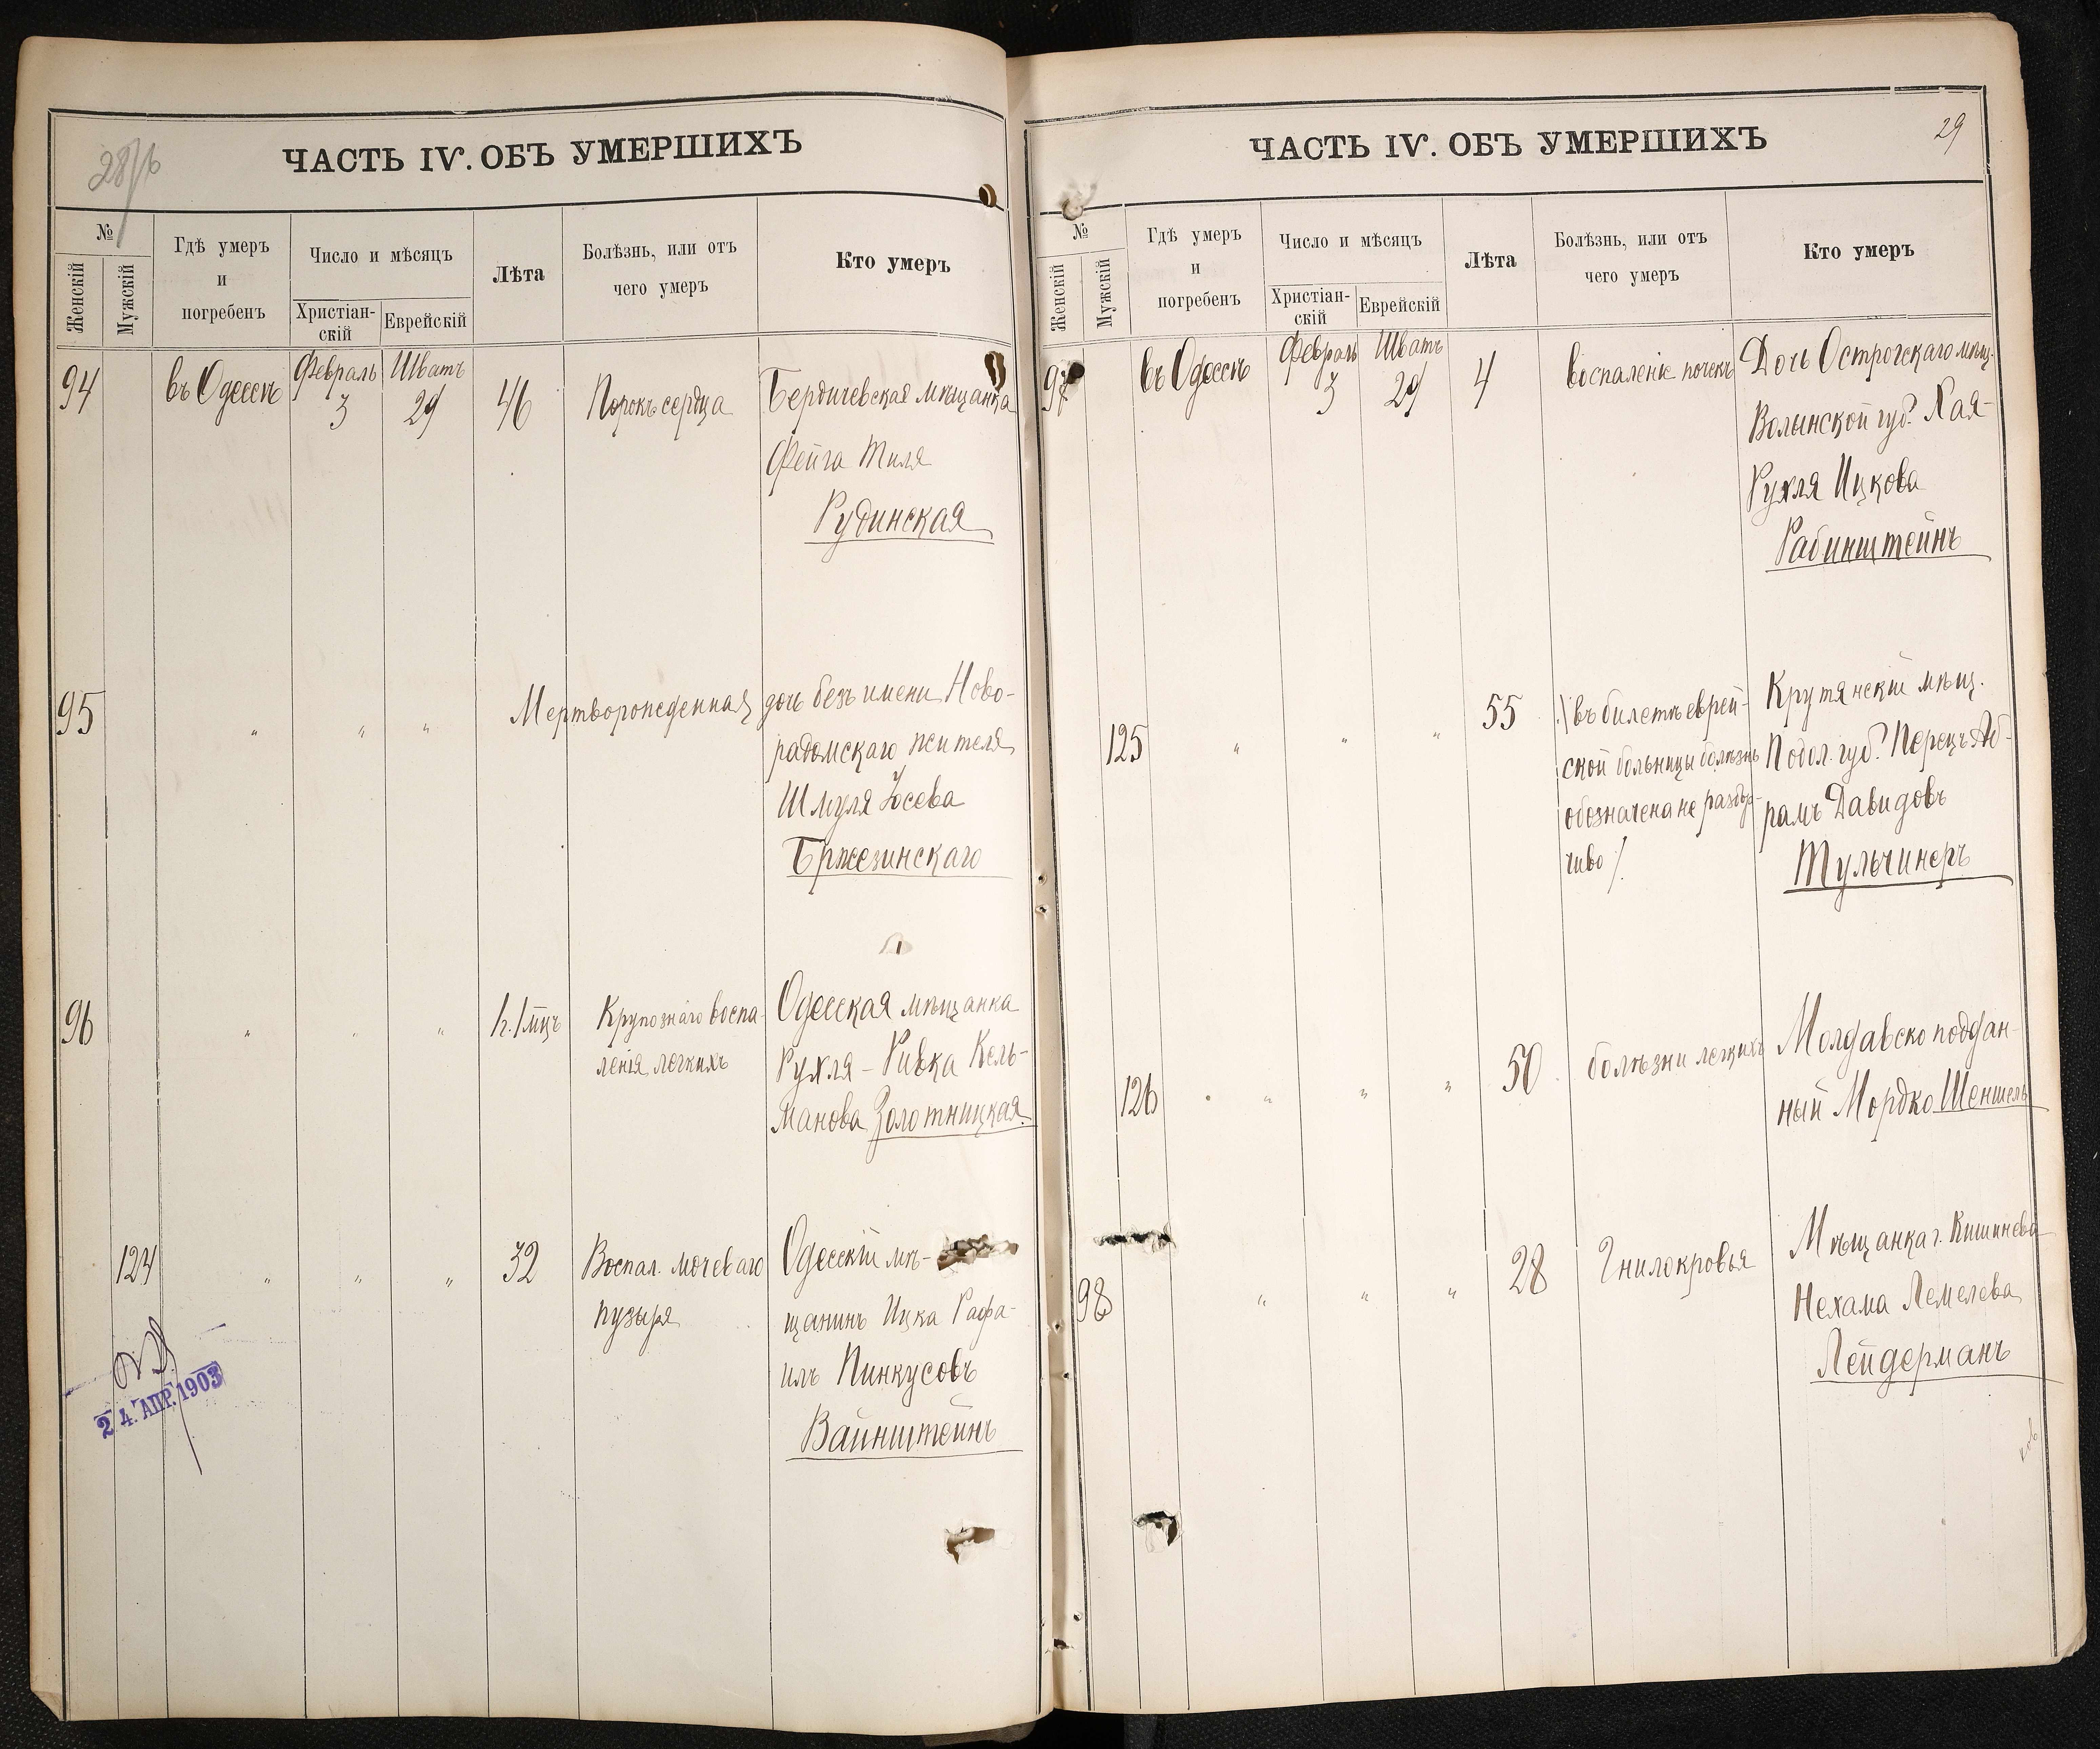 28/б
ЧАСТЬ IV. ОБЪ УМЕРШИХЪ
№
Женскій
Мужскій
Гдѣ умеръ
и
погребенъ
Число и мѣсяцъ
Христіан-
скій
Еврейскій
Лѣта
Болѣзнь, или отъ
чего умеръ
Кто умеръ
94 въ Одессѣ Февраль 3 Шватъ 29 46 Порокъ сердца Бердичевская мѣщанка
Фейга Тиля
Рудинская
95 " " " Мертворожденная дочь безъ имени Ново-
радомскаго жителя
Шмуля Іосева
Бржезинскаго
96 " " " 1 мцъ Крупознаго воспа-
ленія легкихъ
Одесская мѣщанка
Рухля - Ривка Кель-
манова Золотницкая
124 " " " 32 Воспал. мочеваго
пузыря
Одесскій мѣ-
щанинъ Ицка Рафа-
илъ Пинкусовъ
Вайнштейнъ
24. АПР. 1903
29
ЧАСТЬ IV. ОБЪ УМЕРШИХЪ
№
Женскій
Мужскій
Гдѣ умеръ
и
погребенъ
Число и мѣсяцъ
Христіан-
скій
Еврейскій
Лѣта
Болѣзнь, или отъ
чего умеръ
Кто умеръ
97 въ Одессѣ Февраль 3 Шватъ 29 4 воспаленіе почекъ Дочь Острогскаго мѣщ.
Волынской губ. Хая-
Рухля Ицкова
Рабинштейнъ
125 " " " 55 въ билетѣ еврей-
ской больницы болѣзнь
обозначена не разбор-
чиво
Крутянскій мѣщ.
Подол. губ. Перецъ Аб-
рамъ Давидовъ
Тульчинеръ
126 " " " 50 болѣзни легкихъ Молдавско поддан-
ный Мордко Шеншель
98 " " " 28 Гнилокровья Мѣщанка г. Кишинева
Нехама Лемелева
Лейдерманъ